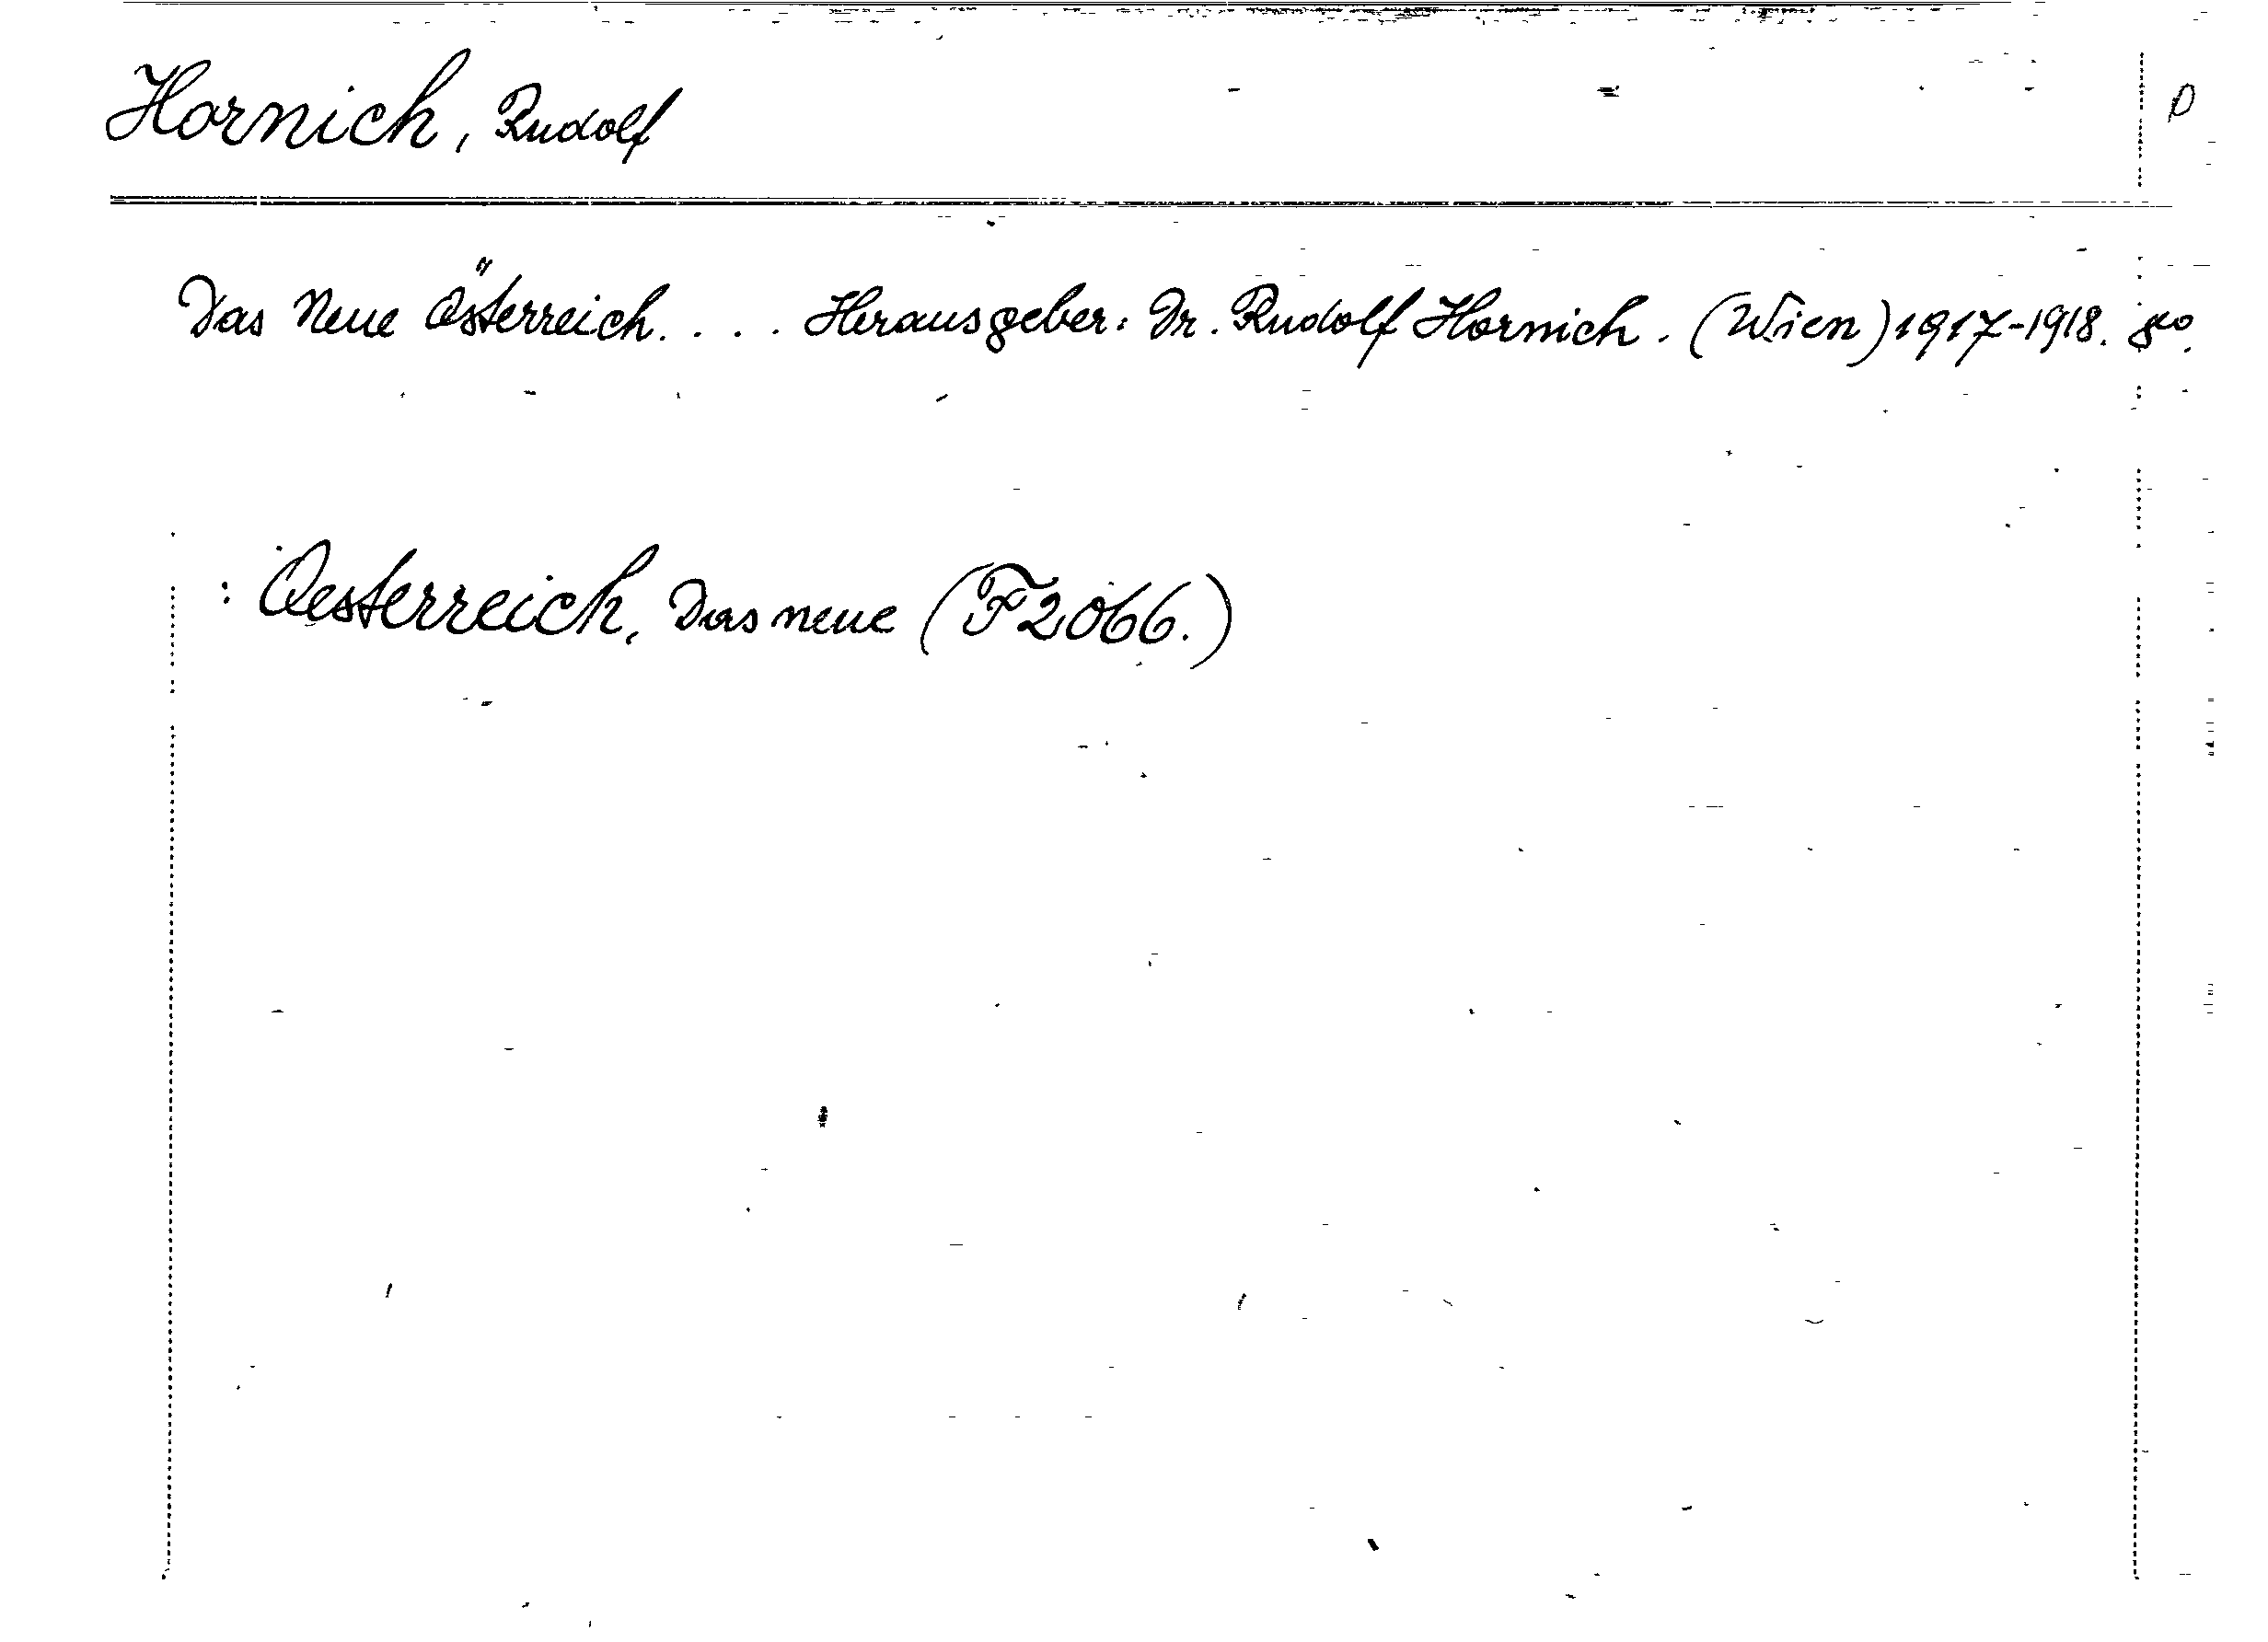 Hornich, Rudolf
Das Neue Österreich. . . . Herausgeber: Dr. Rudolf Hornich. (Wien) 1917-1918. 8o.
: Oesterreich, Das neue (F2066.)